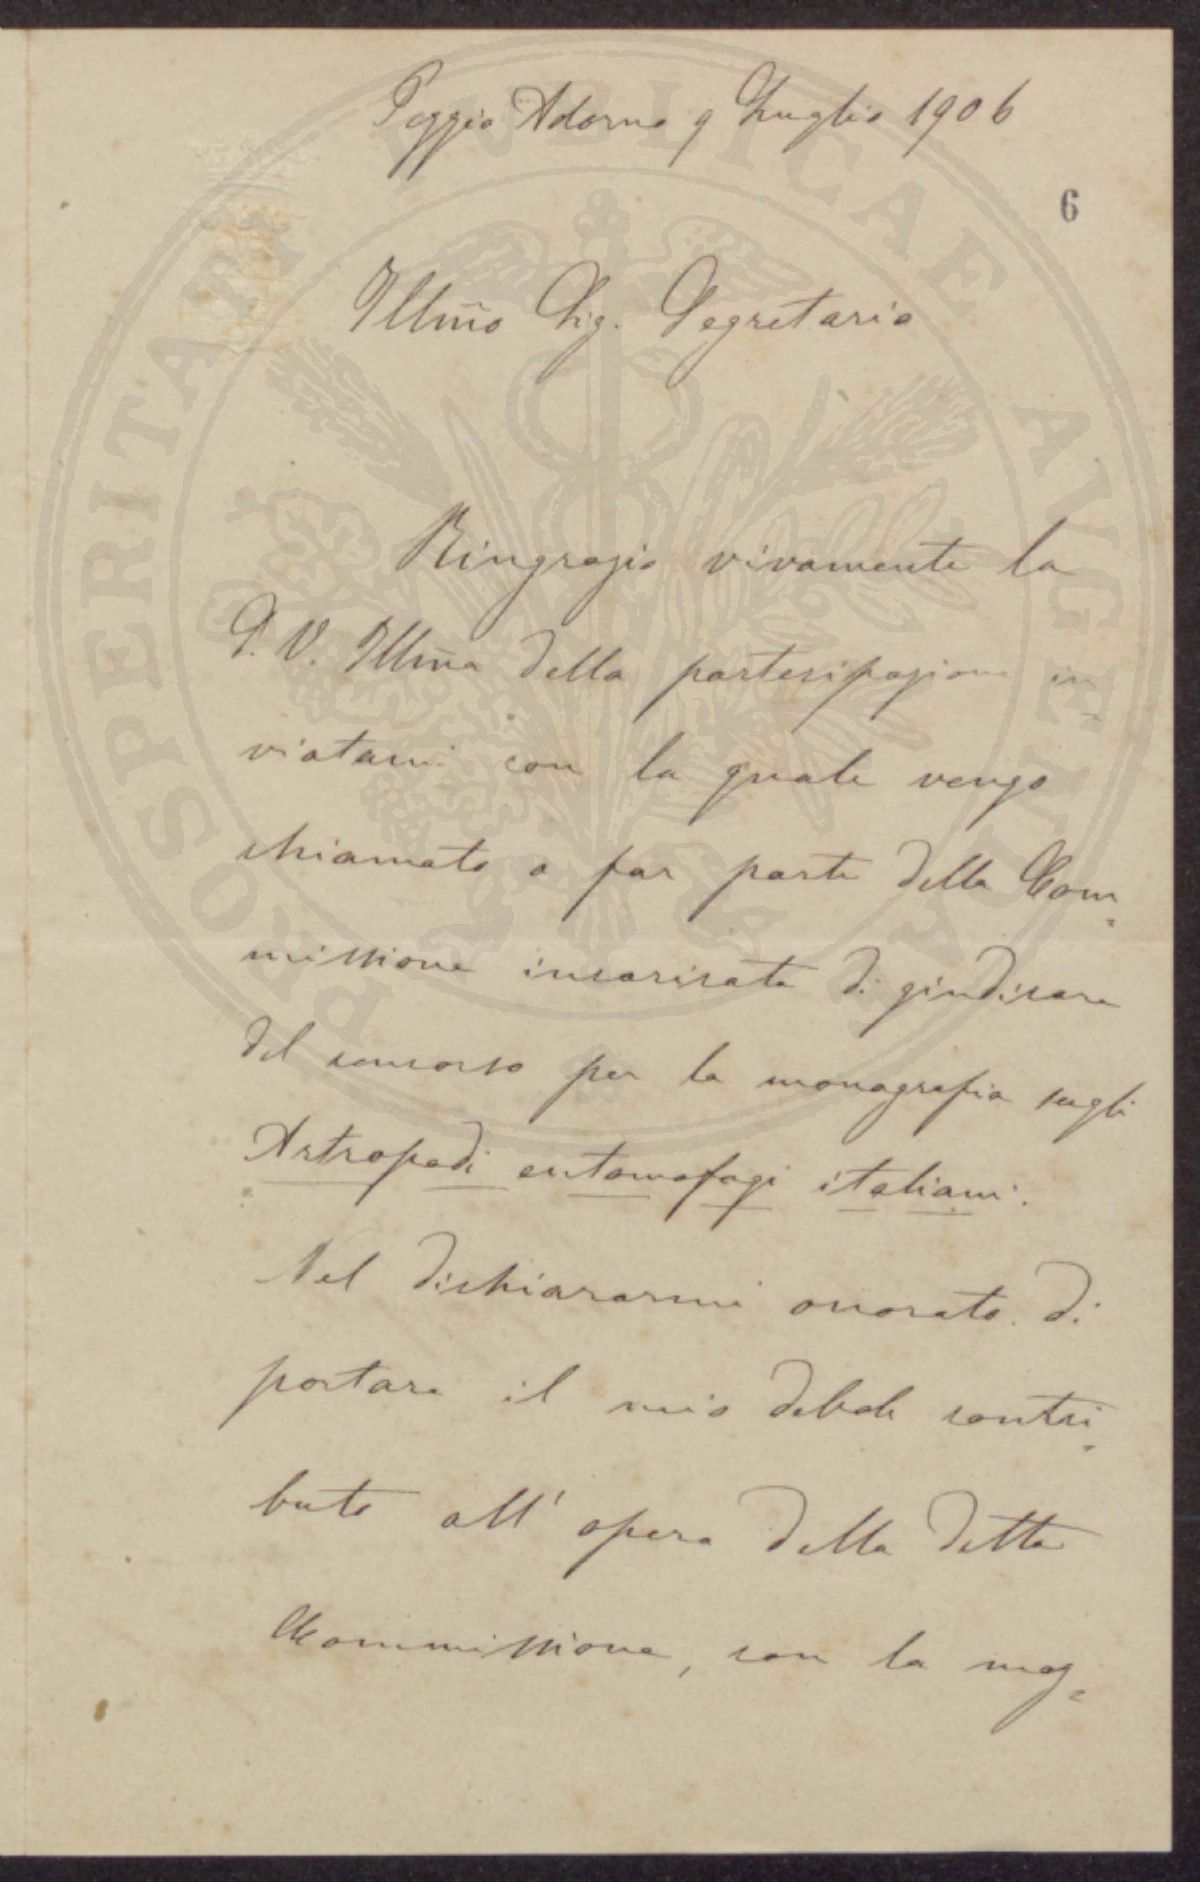 Poggio Adorno 9 Luglio 1906
6
Illm̃o Sig. Segretario
Ringrazio vivamente la
S. V. Illm̃a della partecipazione in-
viatami con la quale vengo
chiamato a far parte della Com-
missione incaricata di giudicare
del concorso per la monografia sugli
Artropodi entomofagi italiani.
Nel dichiararmi onorato di
portare il mio debole contri-
buto all' opera della detta
Commissione, con la mag-
PROSPERITATI PVBLICAE AVGENDAE